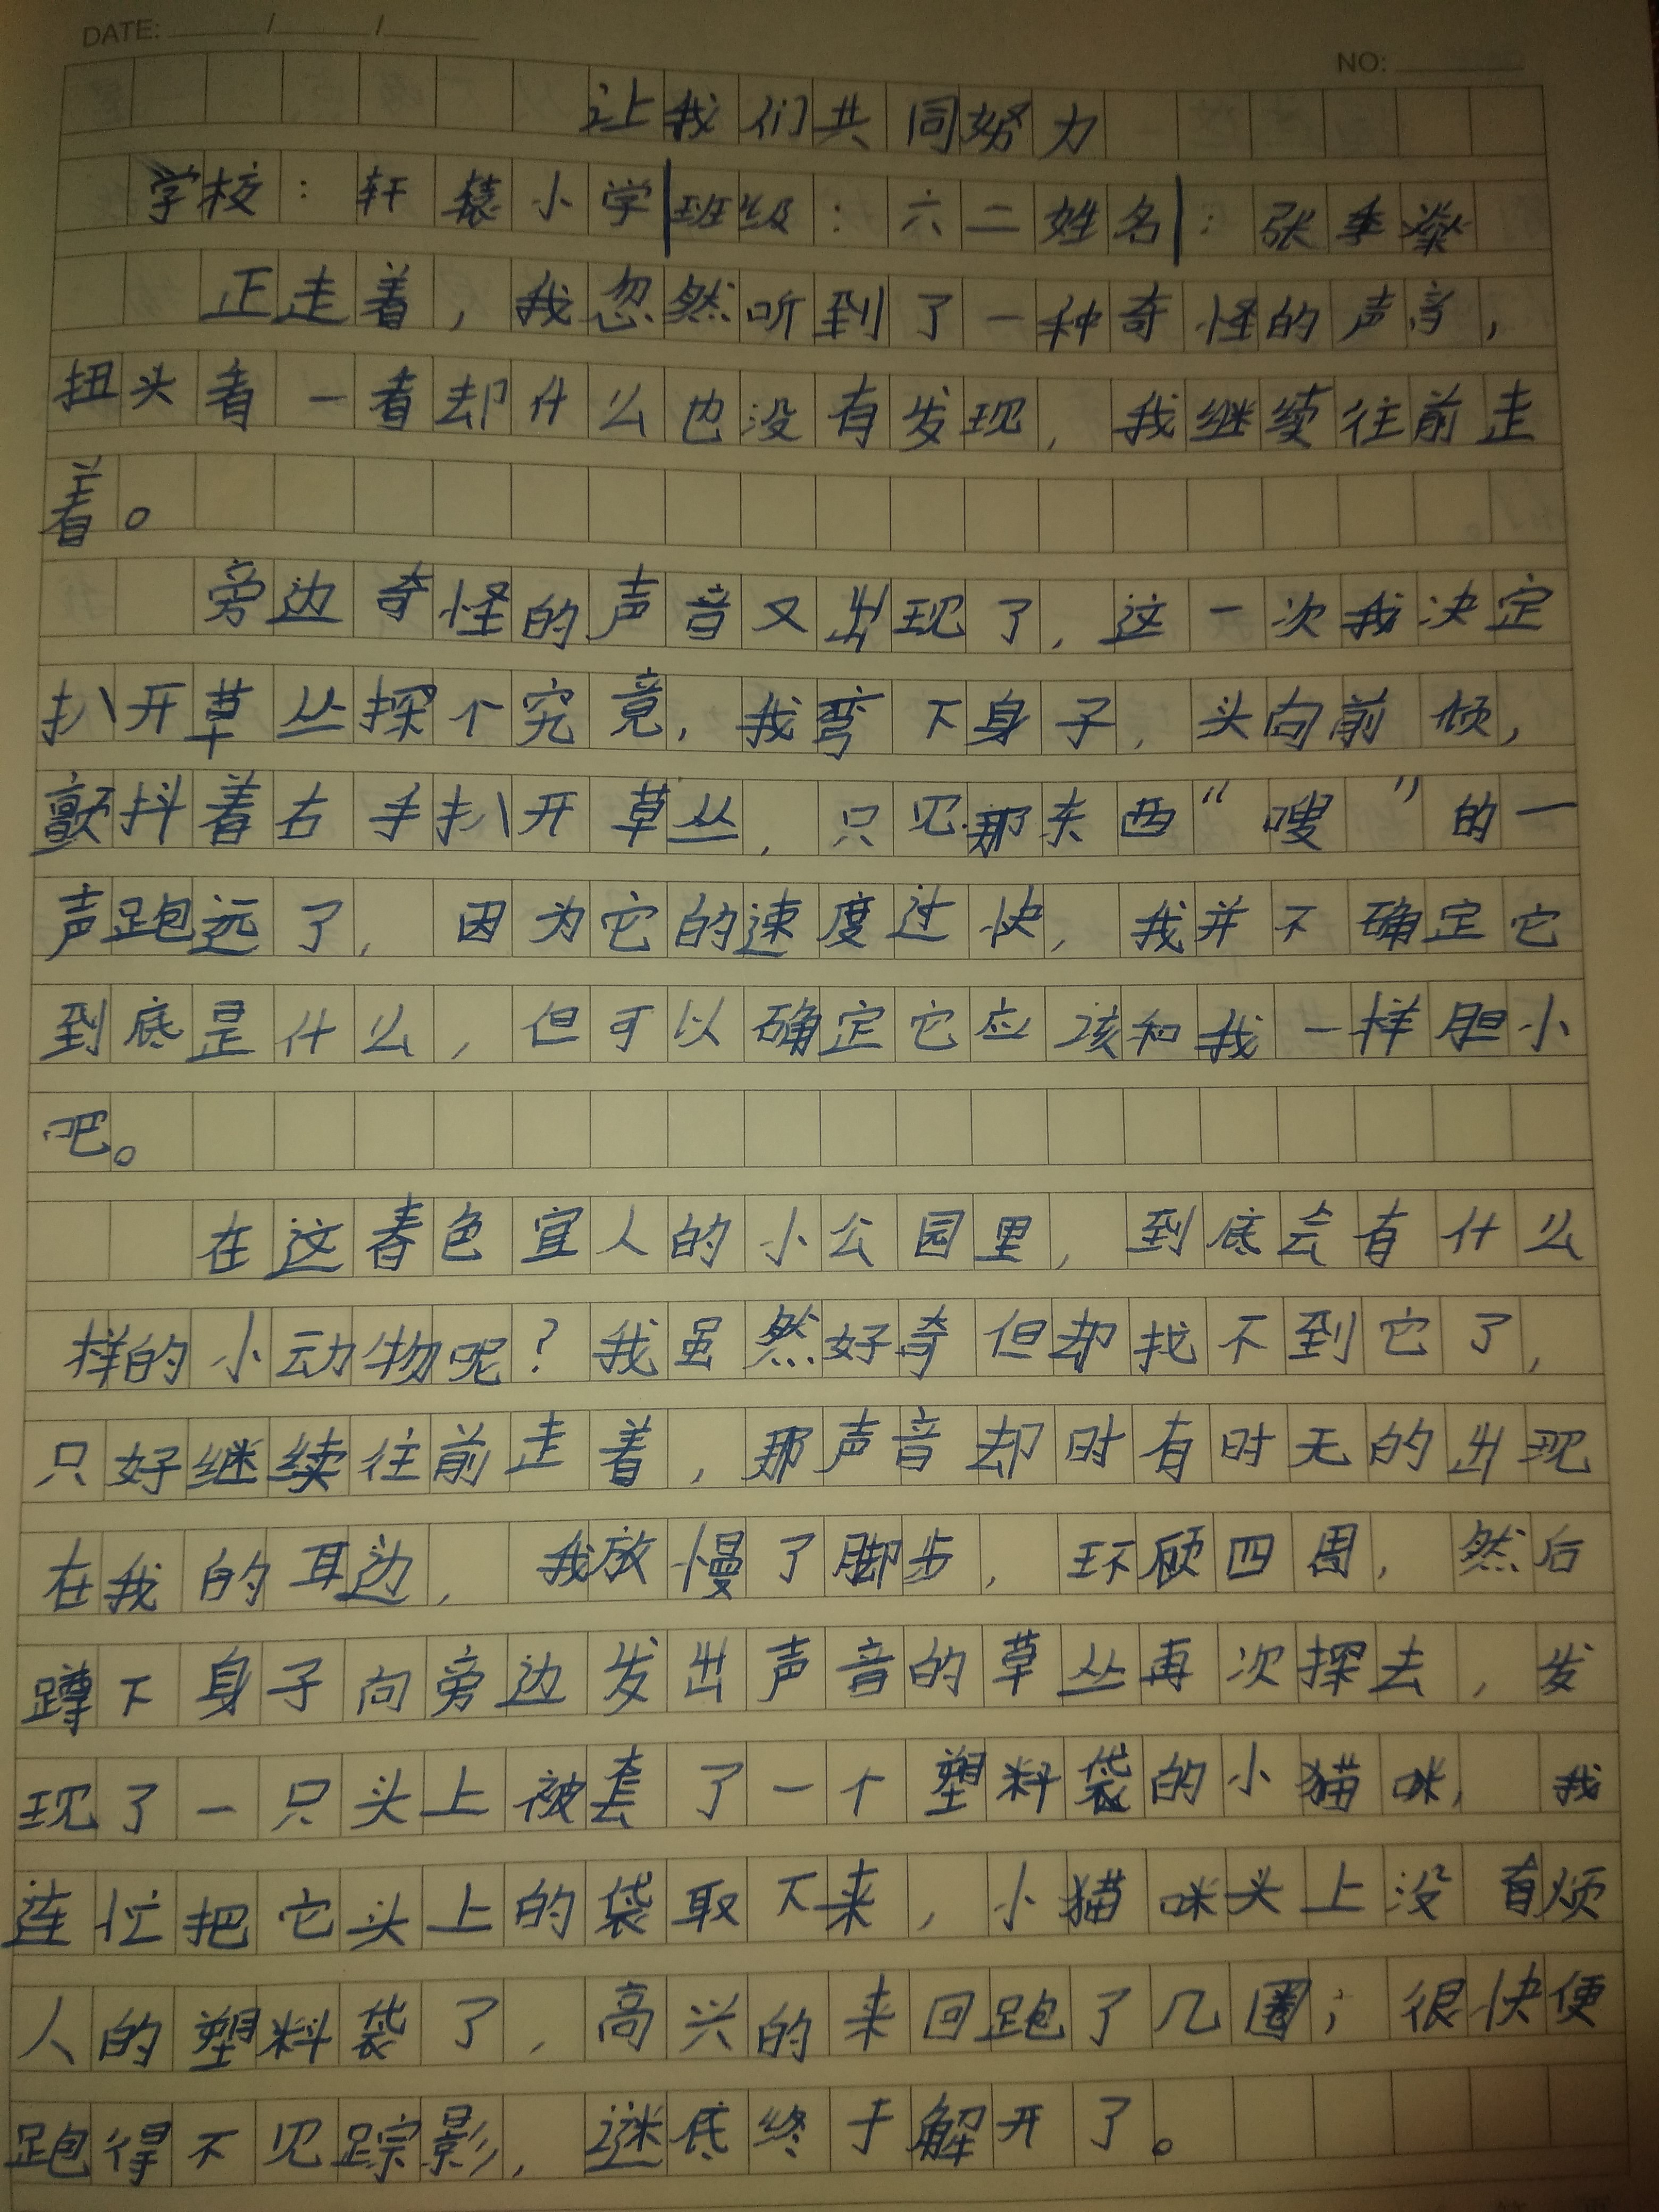 DATE: / /
NO:
让我们共同努力
学校：轩辕小学|班级：六二姓名|：张季燊
正走着，我忽然听到了一种奇怪的声音，
扭头看一看却什么也没有发现，我继续往前走
着。
旁边奇怪的声音又出现了，这一次我决定
扒开草丛探个究竟，我弯下身子，头向前倾，
颤抖着右手扒开草丛，只见那东西“嗖”的一
声跑远了，因为它的速度过快，我并不确定它
到底是什么，但可以确定它应该和我一样胆小
吧。
在这春色宜人的小公园里，到底会有什么
样的小动物呢？我虽然好奇但却找不到它了，
只好继续往前走着，那声音却时有时无的出现
在我的耳边，我放慢了脚步，环顾四周，然后
蹲下身子向旁边发出声音的草丛再次探去，发
现了一只头上被套了一个塑料袋的小猫咪，我
连忙把它头上的袋取下来，小猫咪头上没有烦
人的塑料袋了，高兴的来回跑了几圈；很快便
跑得不见踪影，谜底终于解开了。